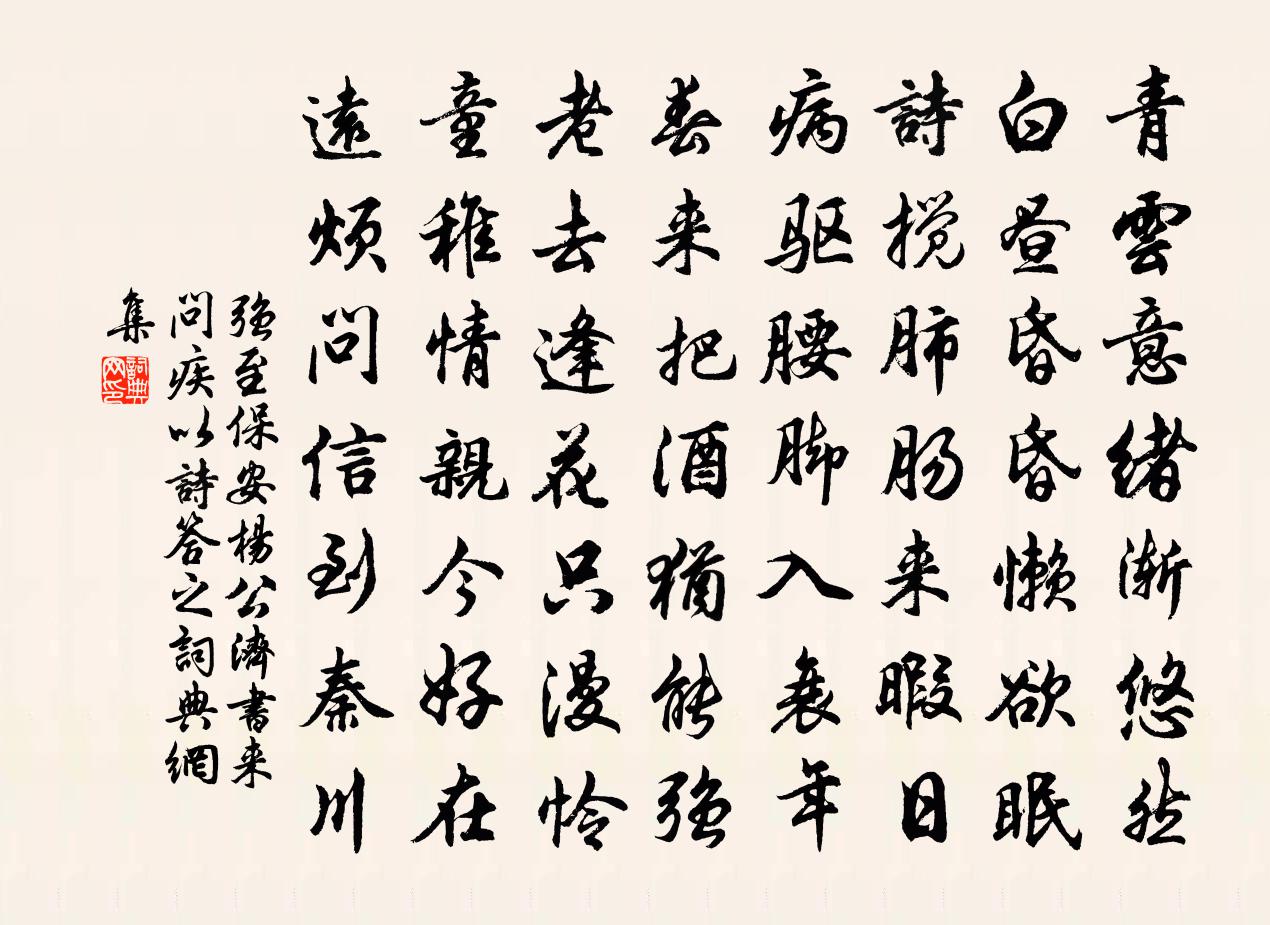 青雲意緒漸悠然
白昼昏昏懶欲眠
詩搅肺肠来暇日
病驱腰脚入衰年
春来把酒猶能強
老去逢花只漫怜
童稚情親今好在
遠煩問信到秦川
強至保安楊公濟書来
問疾以詩答之詞典網
集
詞典
网印